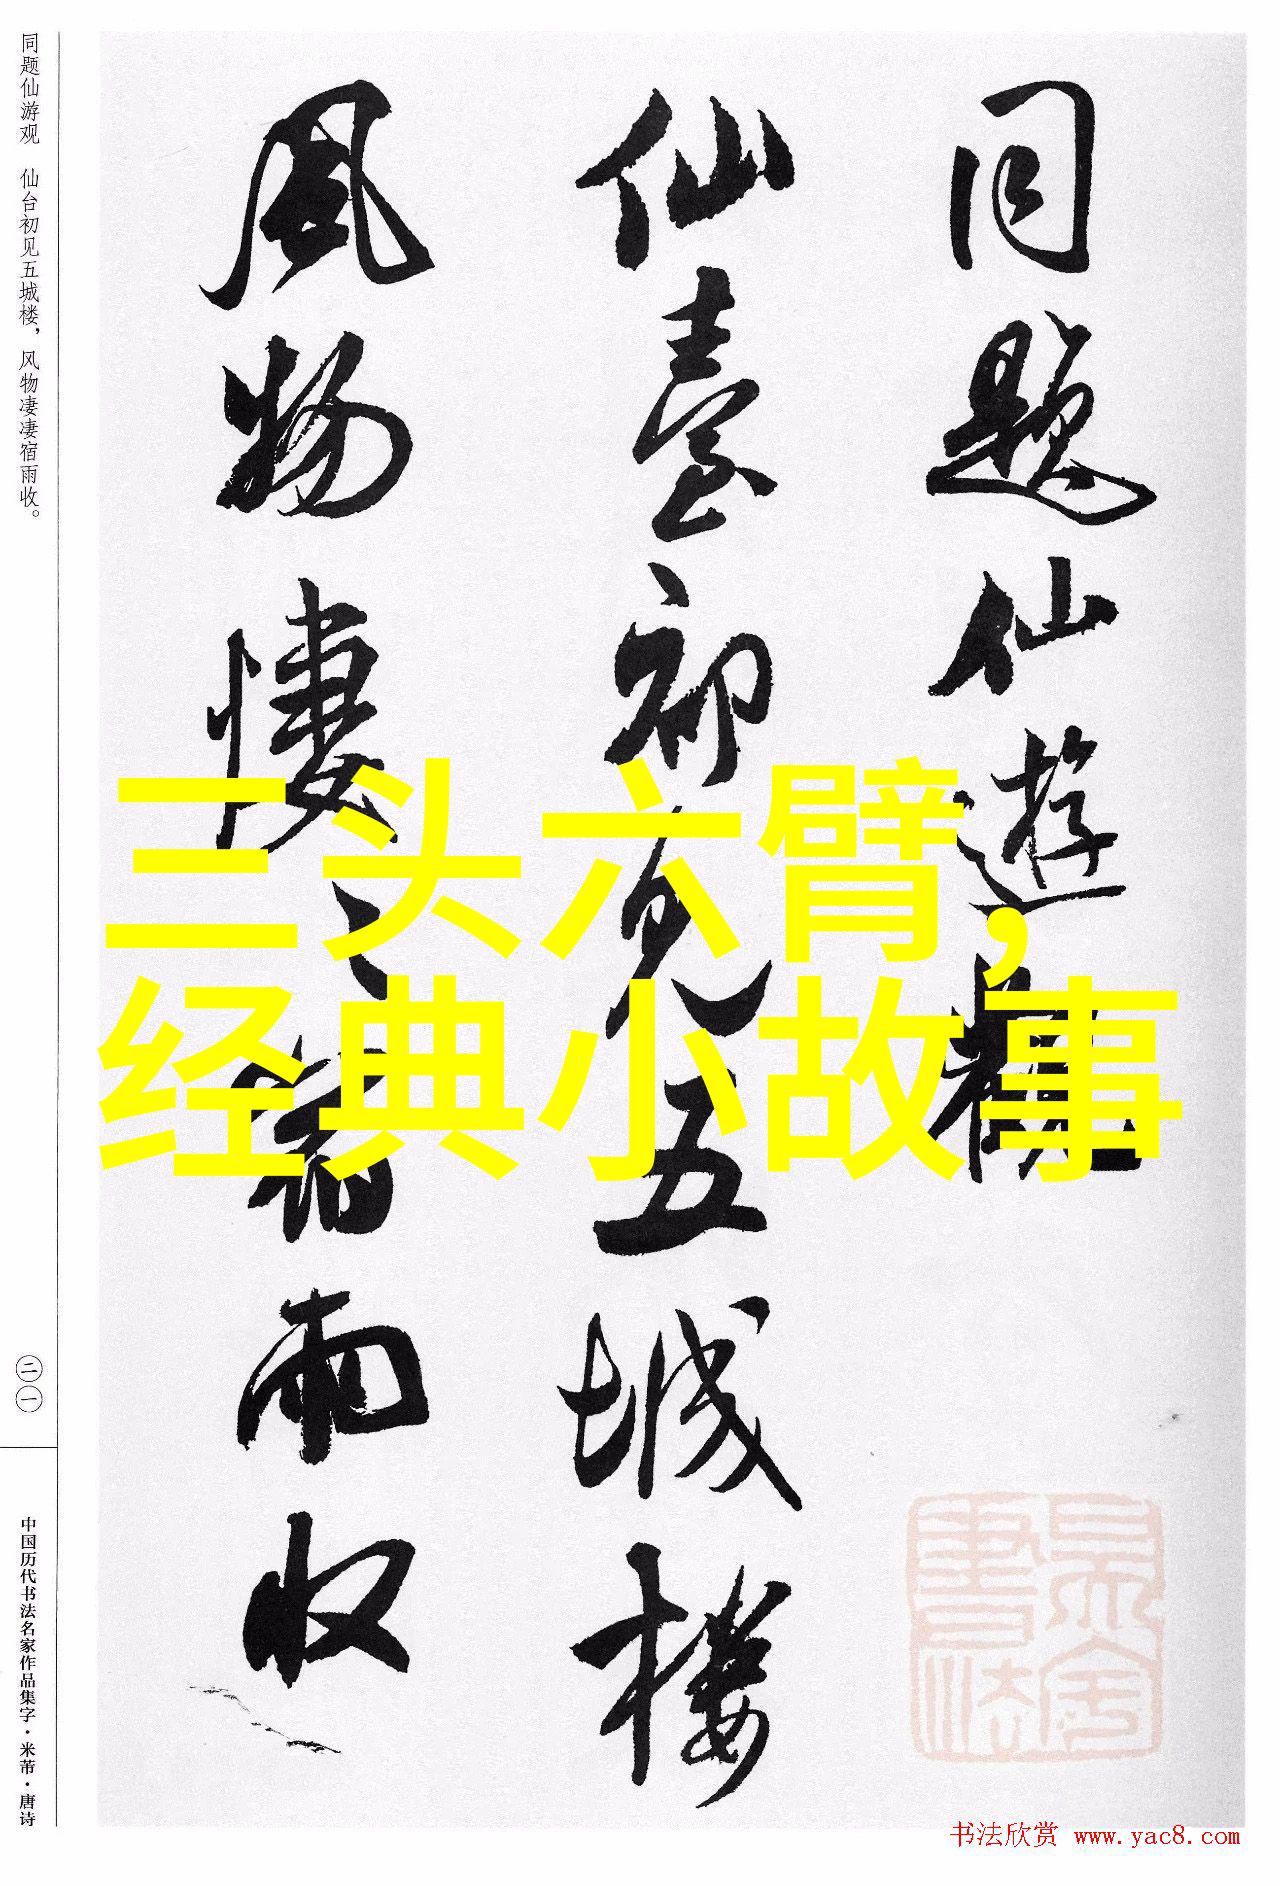 同题仙游观 仙台初见五城楼，风物凄凄宿雨收。
二一
中国历代书法名家作品集字·米芾·唐诗
同题仙遊觀
仙臺初見五城楼
风物悽〻宿雨收
三头六臂，
经典小故事
书法欣赏 www.yac8.com